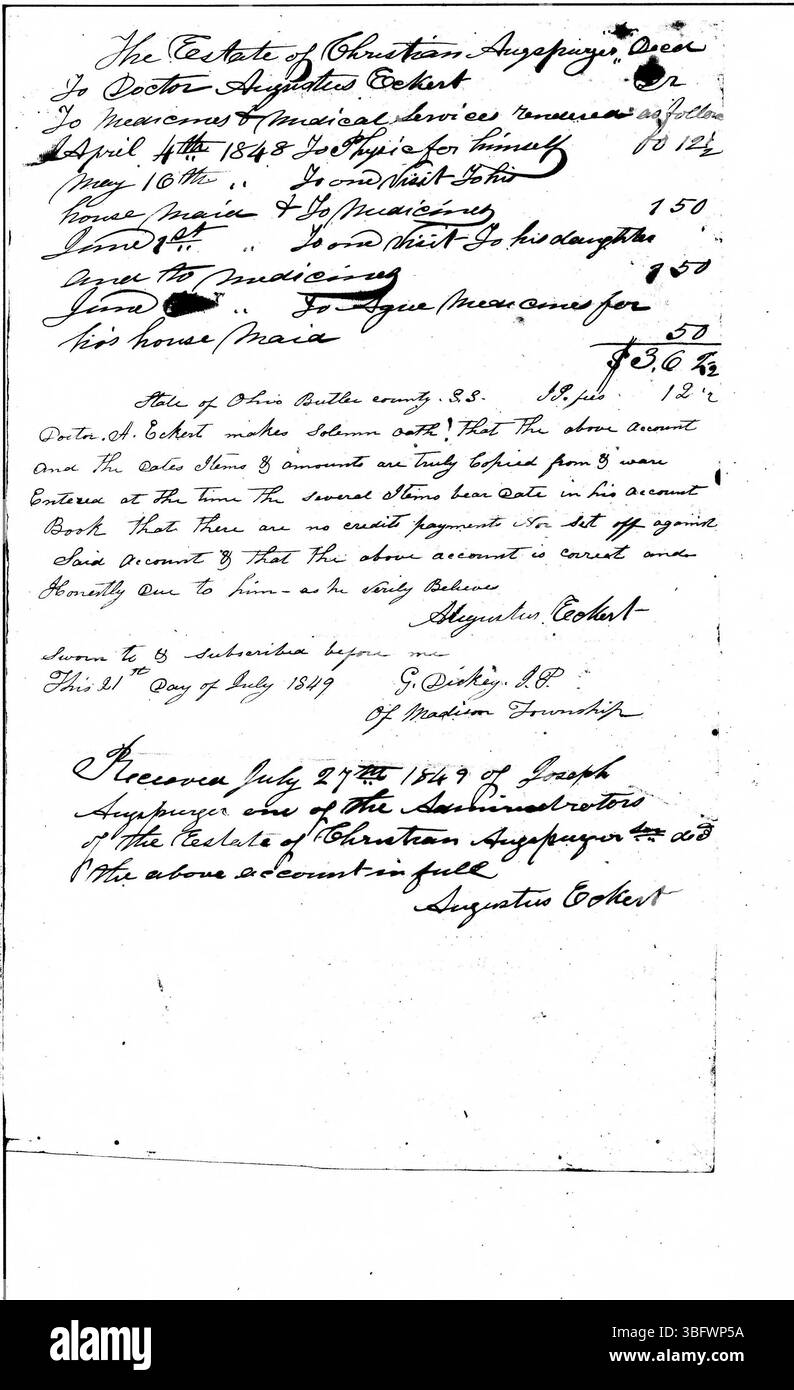 The Estate of Christian Augspurger Decd
To Doctor Augustus Eckert Dr
To Medicines & Medical Services rendered as follow
April 4th 1848 To Physic for himself 00 12½
May 16th " To one Visit To his
house Maid & To Medicines 1 50
June 1st " To one Visit To his daughter
and to medicines 1 50
June " To Ague Medicines for
his house Maid 50
$3.62½
State of Ohio Butler county. S.S. JP. fees 12½
Doctor. A. Eckert makes Solemn oath! that the above account
and the Dates Items & amounts are truly Copied from & ware
Entered at the time the several Items bear Date in his account
Book that there are no credits payments Nor set off against
Said account & that the above account is correct and
Honestly Due to him - as he verily Believes
Augustus Eckert
Sworn to & subscribed before me
This 21st Day of July 1849 G. Dickey. J.P.
Of Madison Township
Received July 27th 1849 of Joseph
Augspurger one of the Administrators
of the Estate of Christian Augspurger decd
the above account in full
Augustus Eckert
alamy
Image ID: 3BFWP5A
www.alamy.com